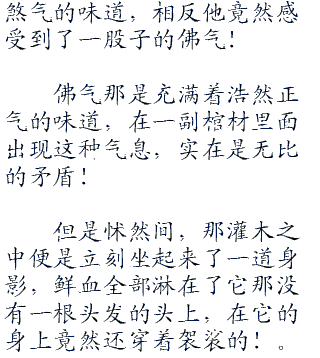 煞气的味道，相反他竟然感
受到了一股子的佛气！
佛气那是充满着浩然正
气的味道，在一副棺材里面
出现这种气息，实在是无比
的矛盾！
但是怵然间，那灌木之
中便是立刻坐起来了一道身
影，鲜血全部淋在了它那没
有一根头发的头上，在它的
身上竟然还穿着袈裟的！。